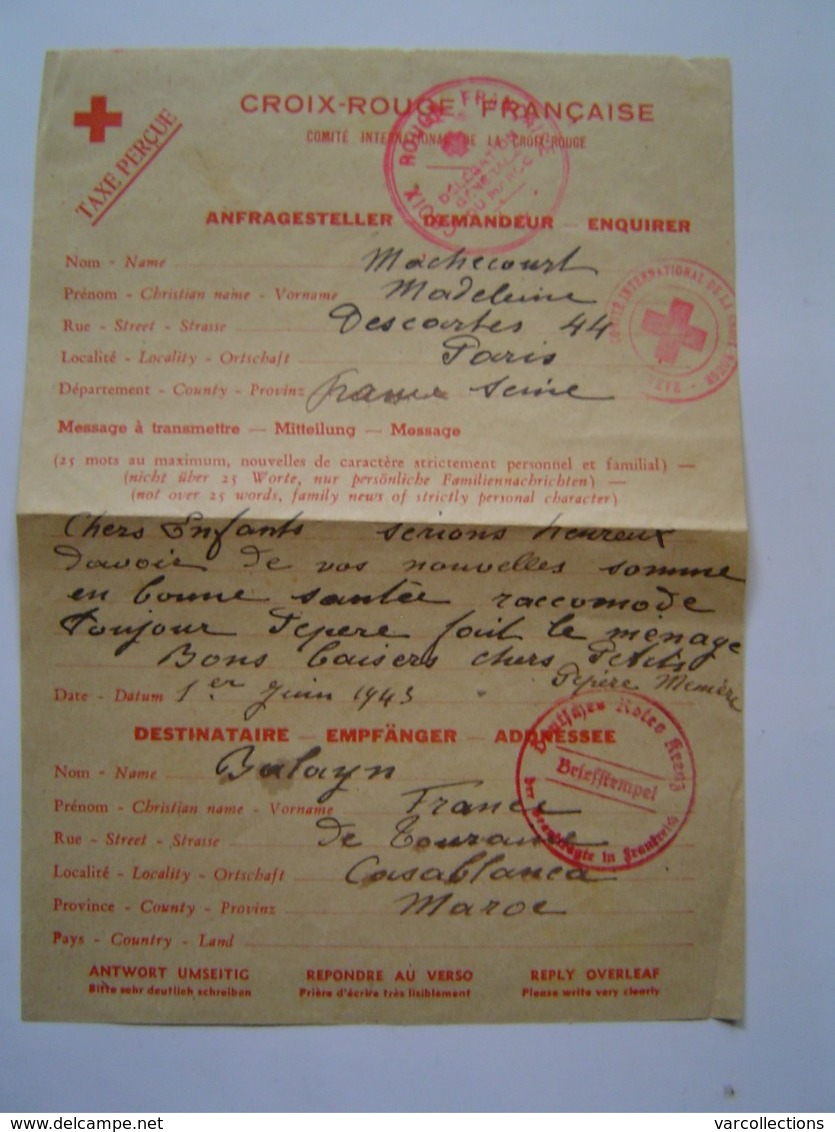 CROIX-ROUGE FRANÇAISE
COMITÉ INTERNATIONAL DE LA CROIX-ROUGE
TAXE PERÇUE
CROIX ROUGE FRANÇAISE
DÉLÉGATION
GÉNÉRALE
AU MAROC
ANFRAGESTELLER — DEMANDEUR — ENQUIRER
Nom - Name Machecourt
Prénom - Christian name - Vorname Madeleine
Rue - Street - Strasse Descartes 44
Localité - Locality - Ortschaft Paris
Département - County - Provinz france Seine
COMITÉ INTERNATIONAL DE LA CROIX ROUGE
Message à transmettre — Mitteilung — Message
(25 mots au maximum, nouvelles de caractère strictement personnel et familial) —
(nicht über 25 Worte, nur persönliche Familiennachrichten) —
(not over 25 words, family news of strictly personal character)
Chers Enfants serions heureux
davoir de vos nouvelles somme
en bonne santée raccomode
Toujour Pepere fait le ménage
Bons baisers chers Petits
Pepère Memère
Date - Datum 1er Juin 1943
DESTINATAIRE — EMPFÄNGER — ADDRESSEE
Nom - Name Balayn
Prénom - Christian name - Vorname
Rue - Street - Strasse de
Localité - Locality - Ortschaft Casablanca
Province - County - Provinz Maroc
Pays - Country - Land
Deutsches Rotes Kreuz
Briefstempel
der Beauftragte in Frankreich
ANTWORT UMSEITIG REPONDRE AU VERSO REPLY OVERLEAF
Bitte sehr deutlich schreiben Prière d'écrire très lisiblement Please write very clearly
www.delcampe.net varcollections